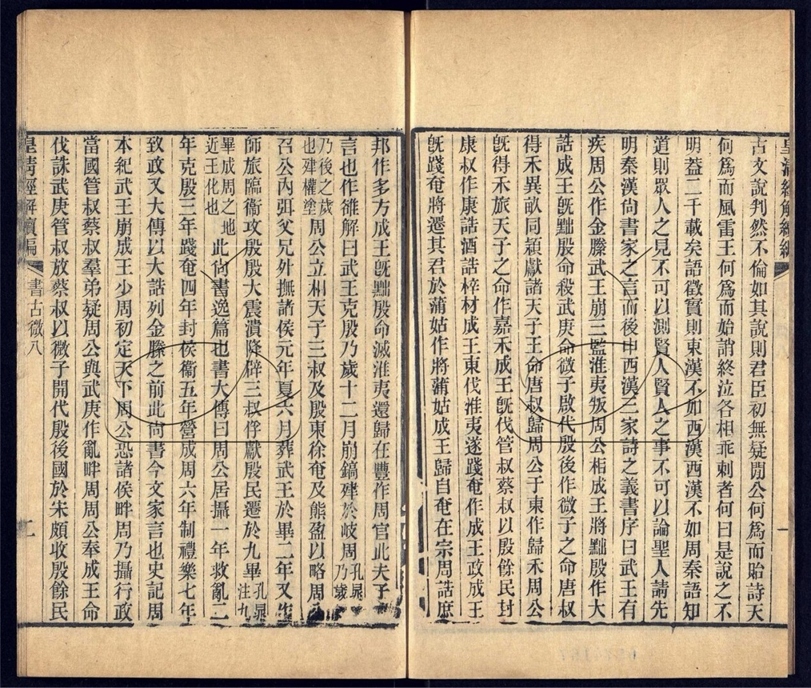 皇清經解續編
一
古文說判然不倫如其說則君臣初無疑閒公何為而貽詩天
何為而風雷王何為而始誚終泣各相乖剌者何曰是說之不
明葢二千載矣語徵實則東漢不如西漢西漢不如周秦語知
道則眾人之見不可以測賢人賢人之事不可以論聖人請先
明秦漢尚書家之言而後申西漢三家詩之義書序曰武王有
疾周公作金縢武王崩三監淮夷叛周公相成王將黜殷作大
誥成王旣黜殷命殺武庚命微子啟代殷後作微子之命唐叔
得禾異畝同穎獻諸天子王命唐叔歸周公于東作歸禾周公
旣得禾旅天子之命作嘉禾成王旣伐管叔蔡叔以殷餘民封
康叔作康誥酒誥梓材成王東伐淮夷遂踐奄作成王政成王
旣踐奄將遷其君於蒲姑作將蒲姑成王歸自奄在宗周誥庶
邦作多方成王旣黜殷命滅淮夷還歸在豐作周官此夫子
言也作雒解曰武王克殷乃歲十二月崩鎬殡於岐周孔晁乃歲
乃後之歲也建權塗周公立相天子三叔及殷東徐奄及熊盈以略周
召公內弭父兄外撫諸侯元年夏六月葬武王於畢二年又作
師旅臨衞攻殷殷大震潰降辟三叔俘獻殷民遷於九畢孔晁注九
畢成周之地近王化也此尚書逸篇也書大傳曰周公居攝一年救亂二
年克殷三年踐奄四年封侯衞五年營成周六年制禮樂七年
致政又大傳以大誥列金縢之前此尚書今文家言也史記周
本紀武王崩成王少周初定天下周公恐諸侯畔周乃攝行政
當國管叔蔡叔羣弟疑周公與武庚作亂畔周周公奉成王命
伐誅武庚管叔放蔡叔以微子開代殷後國於宋頗收殷餘民
皇清經解續編 書古微八 二